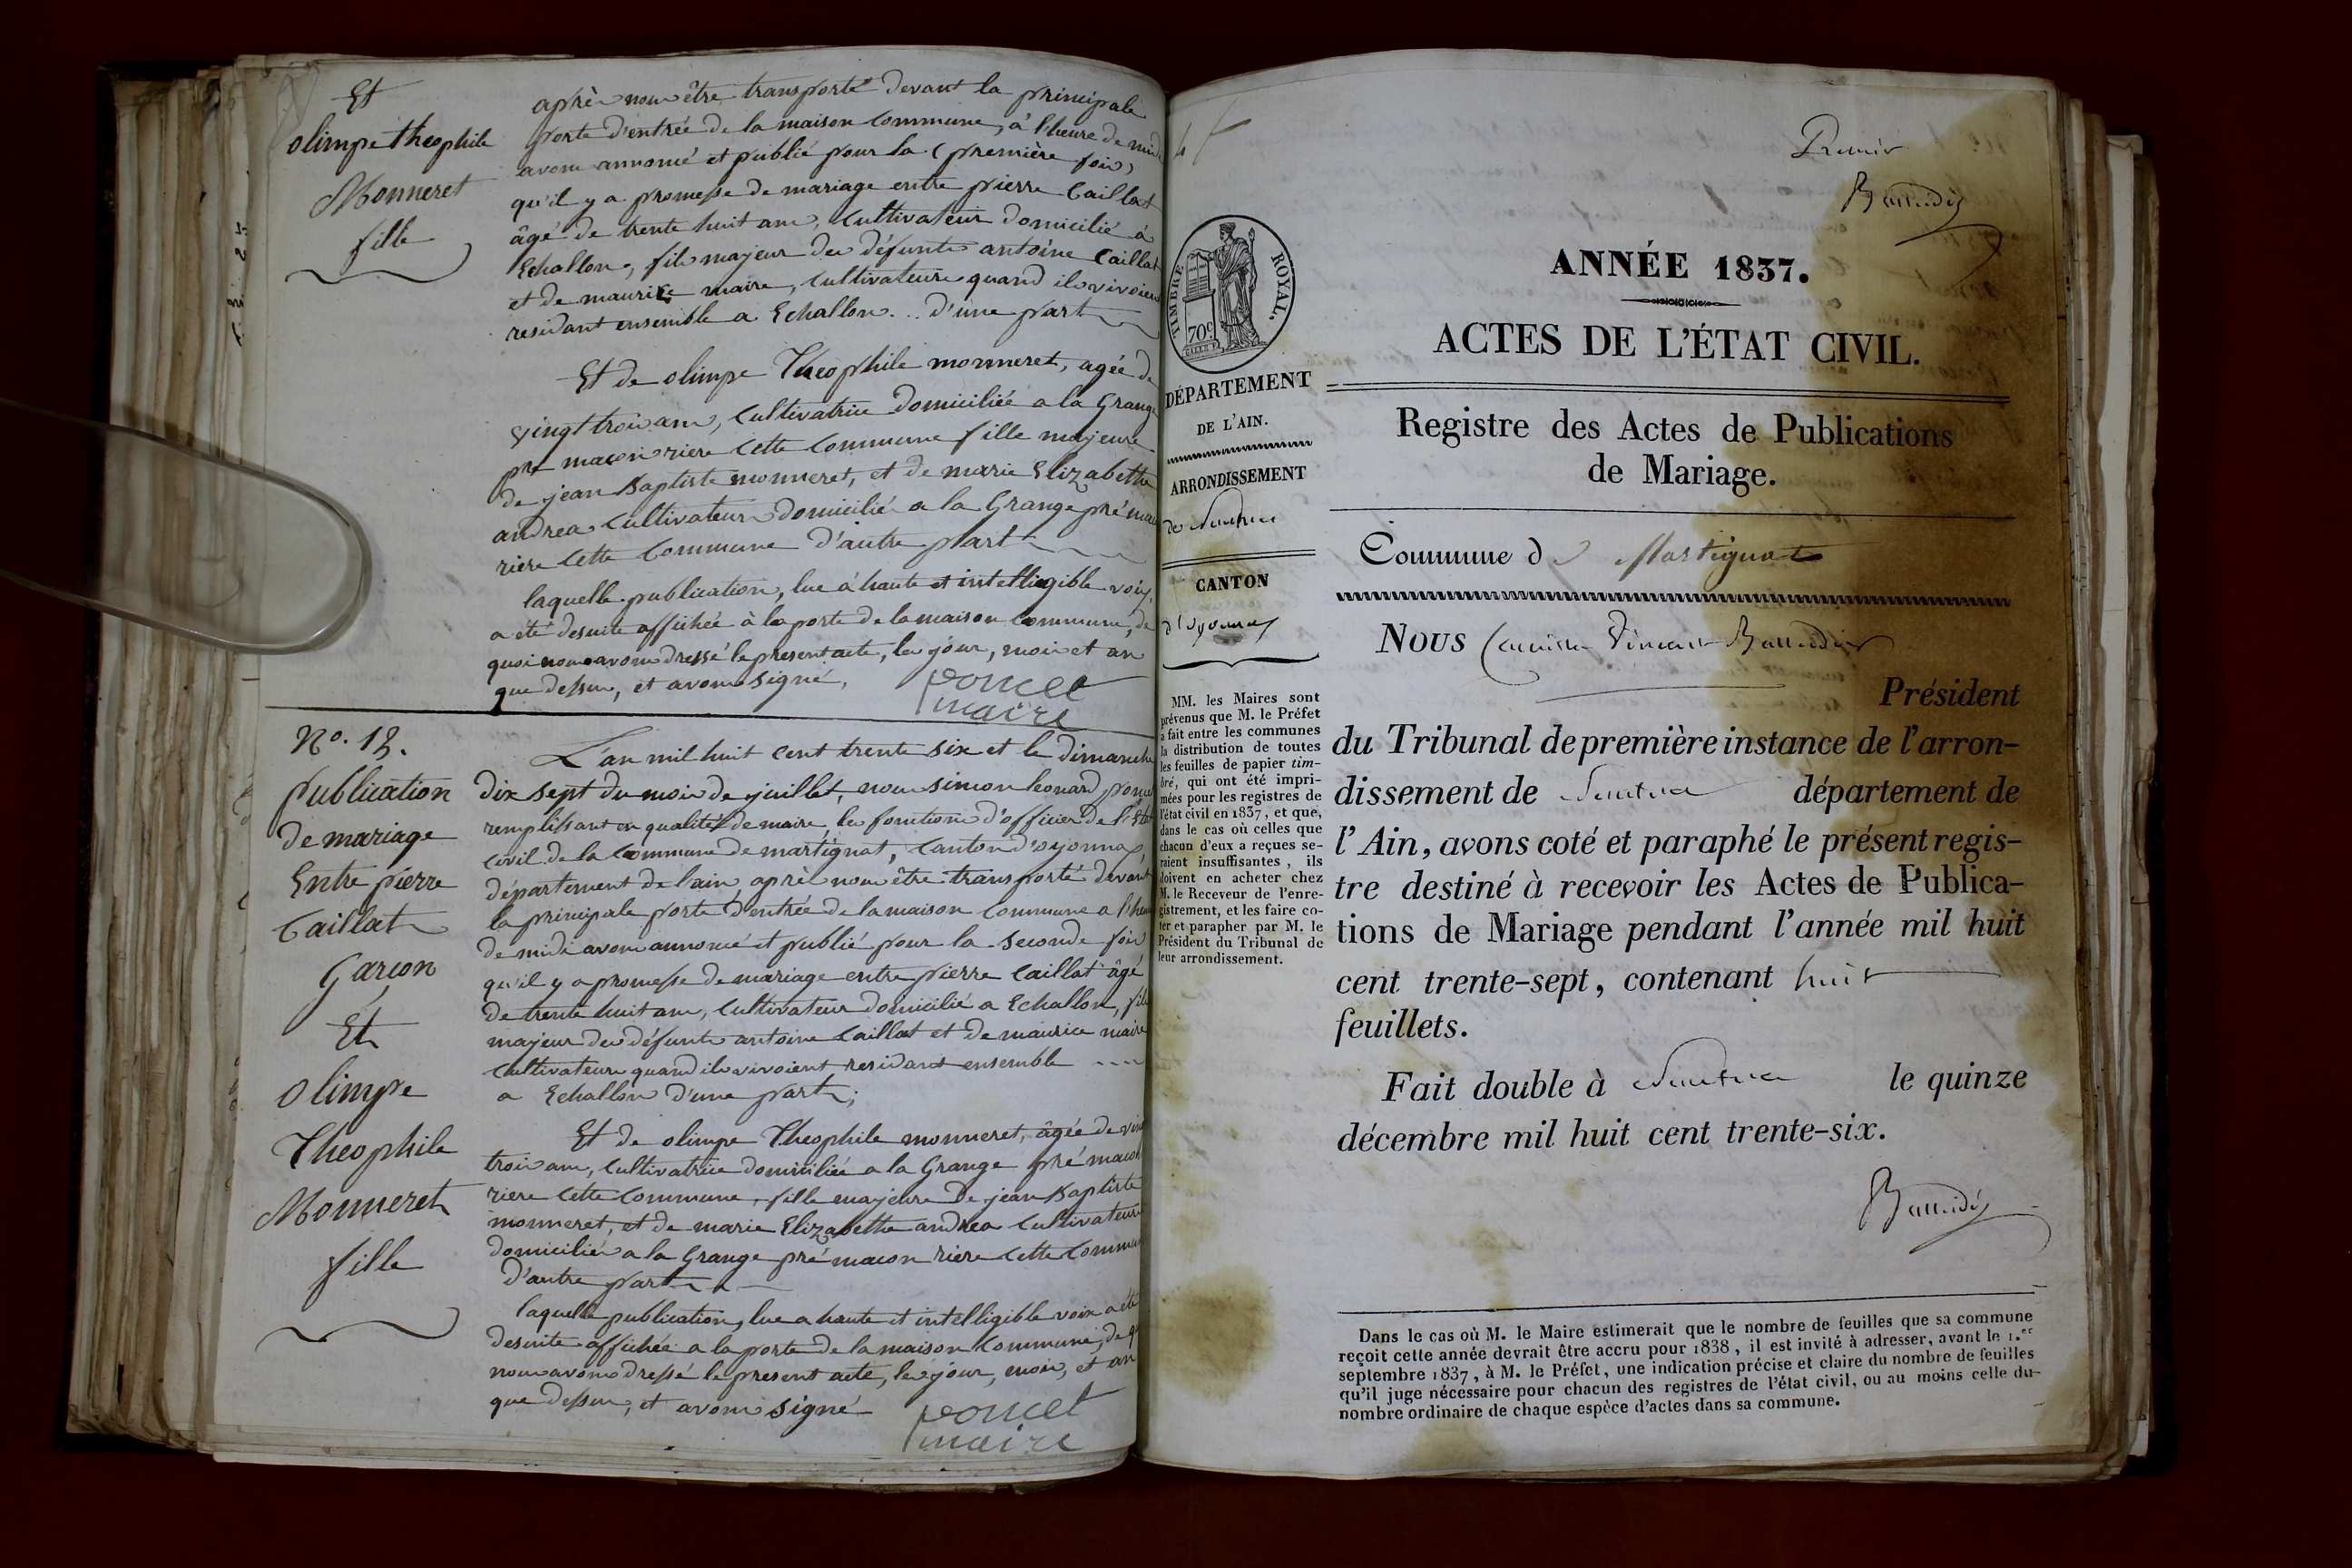 Et
olimpe theophile
Monneret
fille
après nous être transporté devant la principale
porte d'entrée de la maison commune, à l'heure de midi
avons annoncé et publié pour la (première fois)
qu'il y a promesse de mariage entre pierre Caillat
âgé de trente huit ans, cultivateur domicilié à
Echallon, fils majeur des défunts antoine Caillat
et de maurice maire, cultivateurs quand ils vivoient
residant ensemble a Echallon... d'une part
Et de olimpe Theophile monneret, agée de
vingt trois ans, cultivatrice domiciliée a la Grange
pré macon riere cette commune fille majeure
de jean Baptiste monneret, et de marie Elizabethe
andrea cultivateurs domiciliés a la Grange pré macon
riere cette commune d'autre part
laquelle publication, lue à haute et intelligible voix,
a été desuite affichée à la porte de la maison commune, de
quoi nous avons dressé le present acte, les jour, mois et an
que dessus, et avons signé,
poncet
maire
No. 12.
publication
de mariage
Entre pierre
Caillat
Garçon
Et
olimpe
Theophile
Monneret
fille
L'an mil huit cent trente six et le dimanche
dix sept du mois de juillet, nous simon leonard poncet
remplissant en qualité de maire, les fonctions d'officier de l'Etat
civil de la commune de martignat, canton d'oyonnax
département de l'ain, après nous être transporté devant
la principale porte d'entrée de la maison commune a l'heure
de midi avons annoncé et publié pour la seconde fois
qu'il y a promesse de mariage entre pierre Caillat âgé
de trente huit ans, cultivateur domicilié a Echallon, fils
majeur des défunts antoine Caillat et de maurice maire
cultivateurs quand ils vivoient residant ensemble ....
a Echallon d'une part;
Et de olimpe Theophile monneret, âgée de vingt
trois ans, cultivatrice domiciliée a la Grange pré macon
riere cette commune, fille majeure de jean Baptiste
monneret, et de marie Elizabethe andrea cultivateurs
domiciliés a la Grange pré macon riere cette commune
d'autre part
laquelle publication, lue a haute et intelligible voix a été
desuite affichée a la porte de la maison commune, de quoi
nous avons dressé le present acte, les jour, mois, et an
que dessus, et avons signé
poncet
maire
Premier
TIMBRE ROYAL.
70c
DÉPARTEMENT
DE L'AIN.
ARRONDISSEMENT
de Nantua
CANTON
d'oyonnax
MM. les Maires sont
prévenus que M. le Préfet
a fait entre les communes
la distribution de toutes
les feuilles de papier tim-
bré, qui ont été impri-
mées pour les registres de
l'état civil en 1837, et que,
dans le cas où celles que
chacun d'eux a reçues se-
raient insuffisantes, ils
doivent en acheter chez
M. le Receveur de l'enre-
gistrement, et les faire co-
ter et parapher par M. le
Président du Tribunal de
leur arrondissement.
ANNÉE 1837.
ACTES DE L'ÉTAT CIVIL.
Registre des Actes de Publications
de Mariage.
Commune de Martignat
NOUS Vincent
Président
du Tribunal de première instance de l'arron-
dissement de Nantua département de
l'Ain, avons coté et paraphé le présent regis-
tre destiné à recevoir les Actes de Publica-
tions de Mariage pendant l'année mil huit
cent trente-sept, contenant huit
feuillets.
Fait double à Nantua le quinze
décembre mil huit cent trente-six.
Dans le cas où M. le Maire estimerait que le nombre de feuilles que sa commune
reçoit cette année devrait être accru pour 1838, il est invité à adresser, avant le 1.er
septembre 1837, à M. le Préfet, une indication précise et claire du nombre de feuilles
qu'il juge nécessaire pour chacun des registres de l'état civil, ou au moins celle du
nombre ordinaire de chaque espèce d'actes dans sa commune.